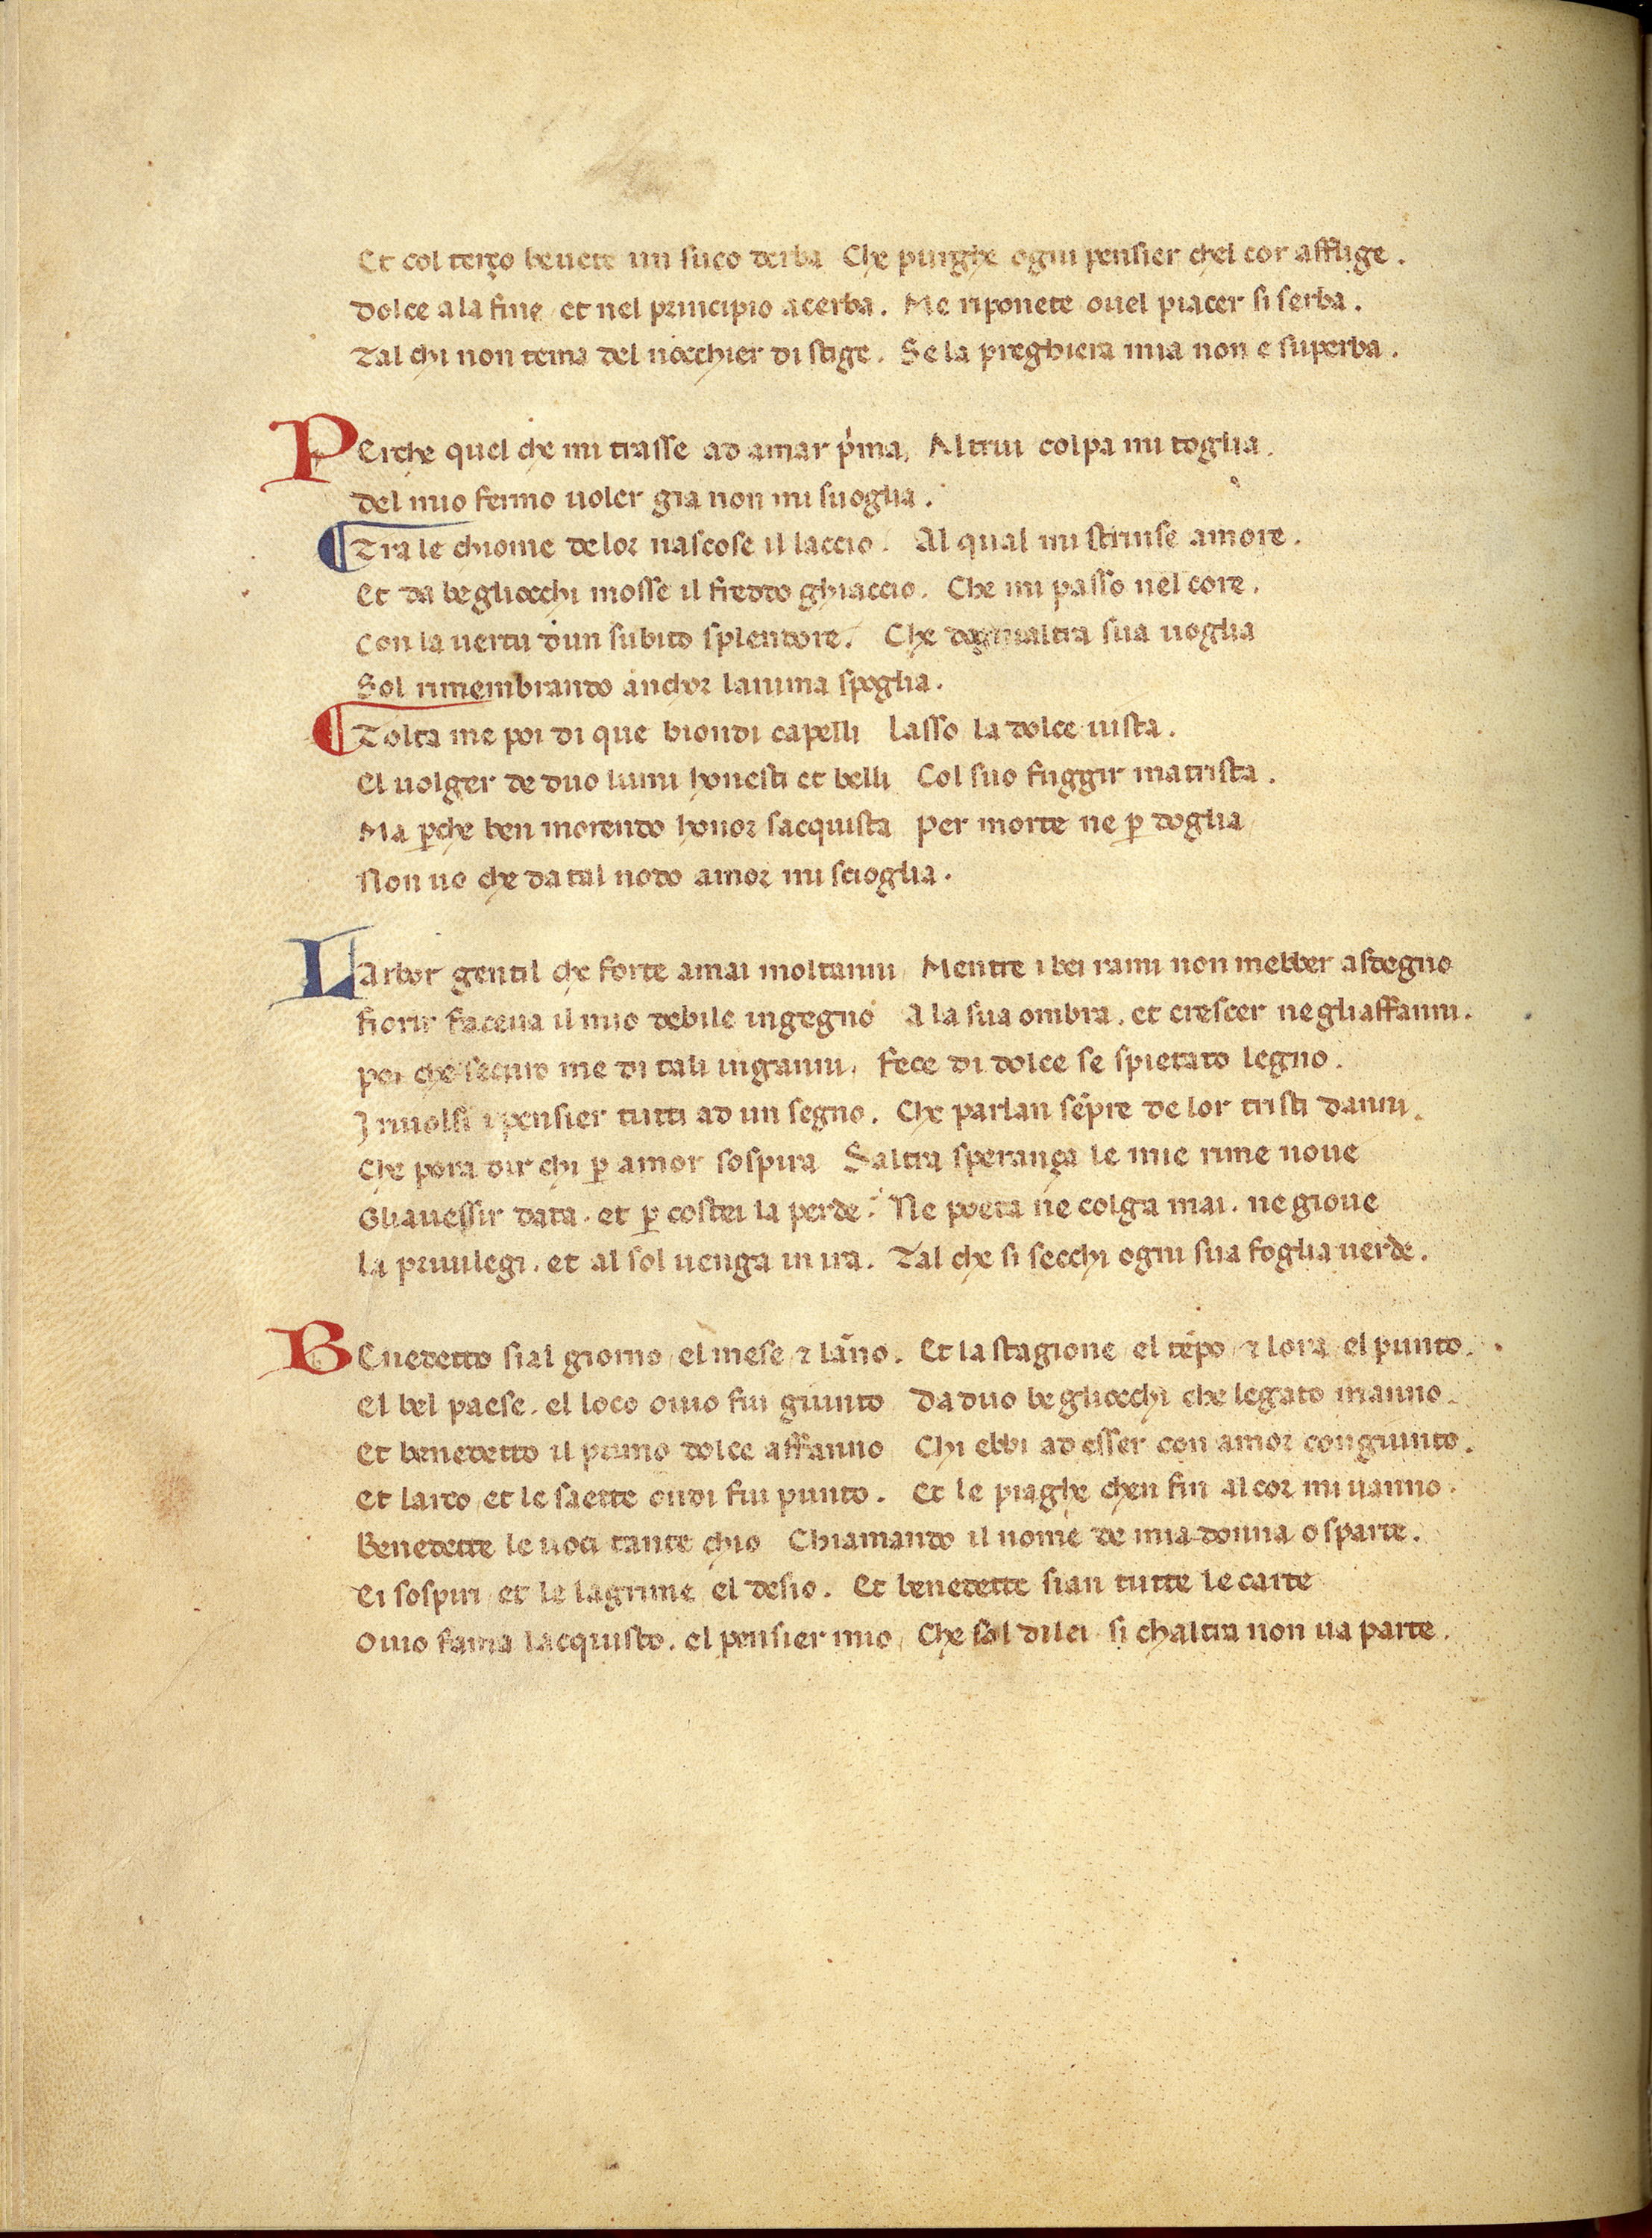 Et col terço beuete un suco derba Che purghe ogni pensier chel cor afflige.
Dolce a la fine et nel principio acerba. Me riponete ouel piacer si serba.
Tal chi non tema del nocchier di stige. Se la preghiera mia non e superba.
PErche quel che mi trasse ad amar p'ma, Altrui colpa mi toglia.
Del mio fermo uoler gia non mi suoglia.
Tra le chiome de lor nascose il laccio. Al qual mi strinse amore.
Et da begliocchi mosse il freddo ghiaccio. Che mi passo nel core.
Con la uertu dun subito splendore. Che dognialtra sua uoglia
Sol rimembrando anchor lanima spoglia.
Tolta me poi di que biondi capelli lasso la dolce uista.
El uolger de duo lumi honesti et belli Col suo fuggir matrista.
Ma p̱che ben morendo honor sacquista per morte ne p̱ doglia
Non uo che da tal nodo amor mi scioglia.
LArbor gentil che forte amai moltanni Mentre i bei rami non mebber asdegno
fiorir faceua il mio debile ingegno A la sua ombra. et crescer negliaffanni.
poi che securo me di tali inganni, fece di dolce se spietato legno.
I riuolsi i pensier tutti ad un segno. Che parlan sēpre de lor tristi danni.
Che pora dir chi p̱ amor sospira Saltra sperança le mie rime noue
Gliauessir data. et p̱ costei la perde: Ne poeta ne colga mai. ne gioue
la priuilegi. et al sol uenga in ira. Tal che si secchi ogni sua foglia uerde.
BEnedetto sial giorno el mese ⁊ lāno. Et la stagione el tēpo ⁊ lora el punto.
El bel paese. el loco ouio fui giunto Da duo begliocchi che legato manno.
Et benedetto il primo dolce affanno Chi ebbi ad esser con amor congiunto.
Et larco et le saette ondi fui punto. Et le piaghe chen fin al cor mi uanno.
Benedette le uoci tante chio Chiamando il nome de mia donna o sparte.
Ei sospiri et le lagrime el desio. Et benedette sian tutte le carte
Ouio fama lacquisto. el pensier mio, Che sol dilei si chaltra non ua parte.